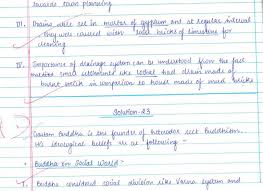 towards town planning
III. Drains were set in mortar of gypsum and at regular interval
they were caused with loose bricks of limestone for
cleaning
IV. Importance of drainage system can be understood from the fact
small settlement like Lothal had drain made of
burnt brick in comparison to house made of mud bricks
Solution-23
Gautam Buddha is the founder of sect Buddhism.
His ideological beliefs are as following :-
• Buddha on Social World :-
I. Buddha considered social division like Varna system and